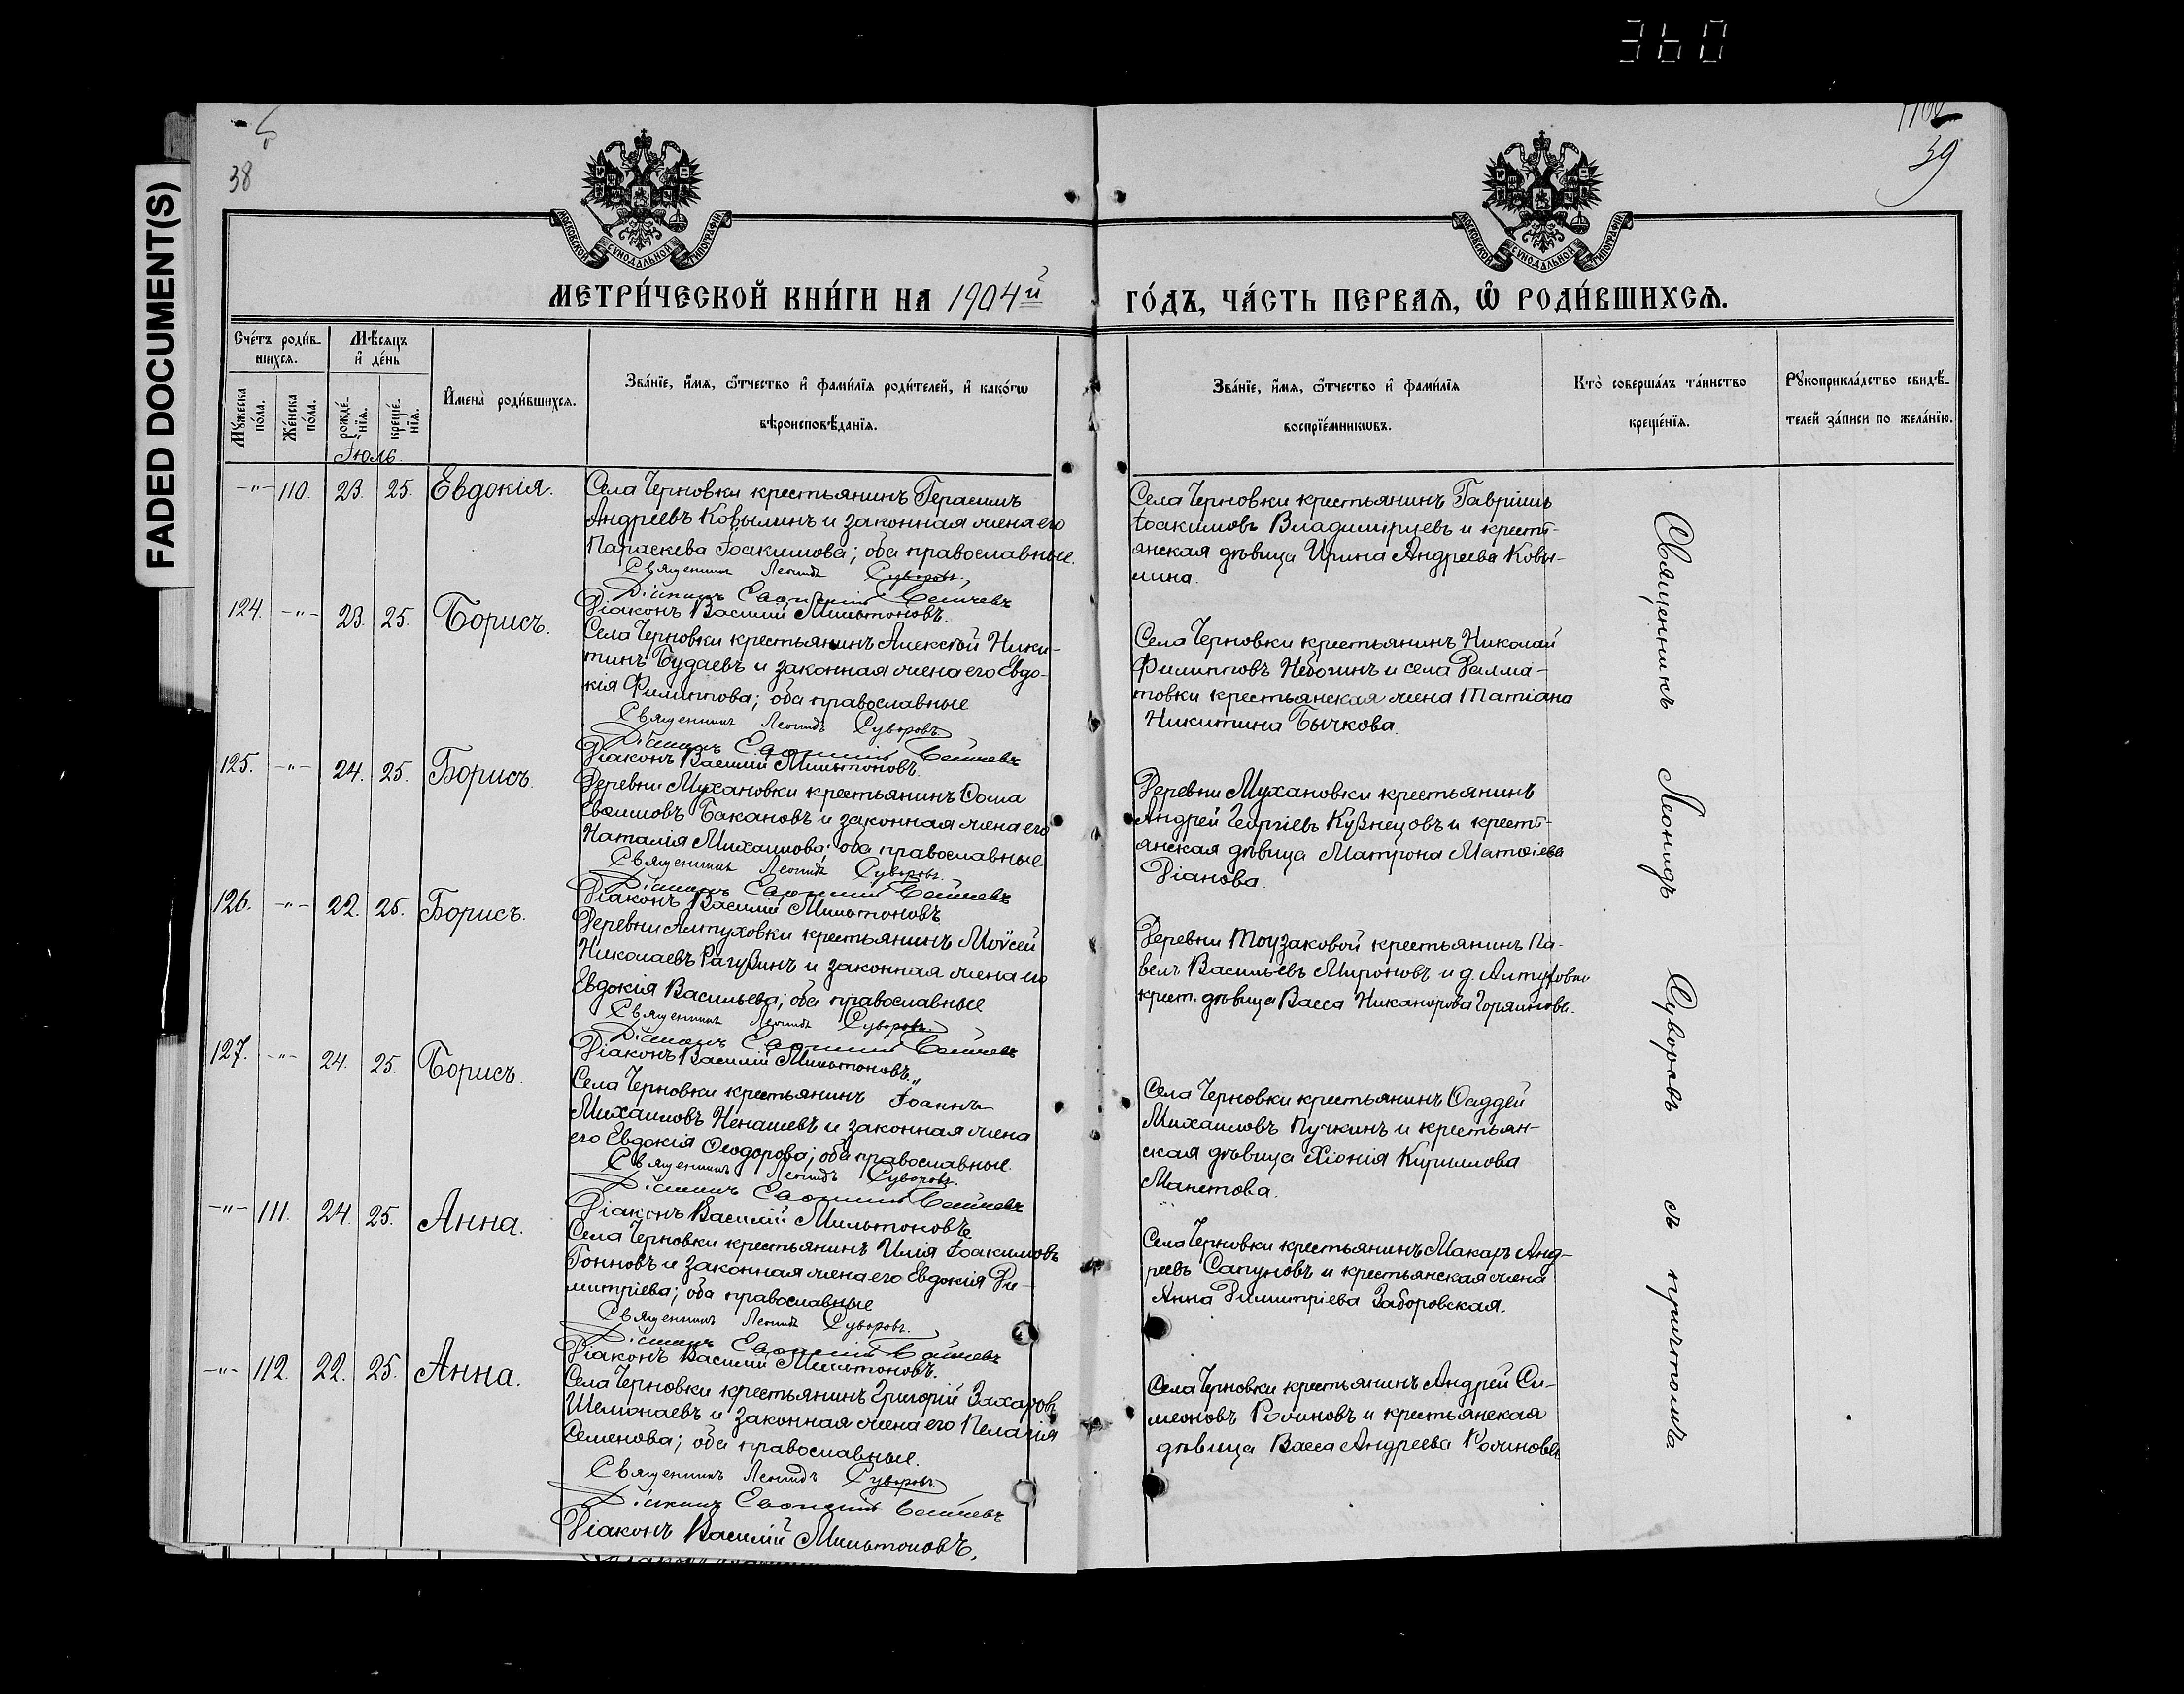 360
FADED DOCUMENT(S)
38
39
МОСКОВСКОЙ СѴНОДАЛЬНОЙ ТИПОГРАФІИ
МОСКОВСКОЙ СѴНОДАЛЬНОЙ ТИПОГРАФІИ
МЕТРИ́ЧЕСКОЙ КНИ́ГИ НА 1904й
ГО́ДЪ, ЧА́СТЬ ПЕРВАѦ, Ѡ҆ РОДИ́ВШИХСѦ.
Сче́тъ роди́в-
шихсѧ.
Мѣ́сяцъ
и҆ де́нь
Мꙋ́жеска
по́ла.
Же́нска
по́ла.
рожде́-
нїѧ.
креще́-
нїѧ.
И҆мена̀ роди́вшихсѧ.
Зва́нїе, и҆́мѧ, ѻ҆́тчество и҆ фами́лїѧ роди́телей, и҆ како́гѡ
вѣроисповѣ́данїѧ.
Зва́нїе, и҆́мѧ, ѻ҆́тчество и҆ фами́лїѧ
воспрїе́мникѡвъ.
Кто̀ соверша́лъ та́инство
креще́нїѧ.
Рꙋкоприкла́дство свидѣ́-
телей за́писи по жела́нїю.
Іюль.
-"- 110. 23. 25. Евдокія.
Села Черновки крестьянинъ Герасимъ
Андреевъ Ковылинъ и законная жена его
Параскева Іоакимова; оба православные.
Священникъ Леонидъ Суворовъ.
Діаконъ Василій Мильтоновъ.
Села Черновки крестьянинъ Гавріилъ
Іоакимовъ Владимірцевъ и кресть-
янская дѣвица Ирина Андреева Ковы-
лина.
124. -"- 23. 25. Борисъ.
Села Черновки крестьянинъ Алексѣй Ники-
тинъ Будаевъ и законная жена его Евдо-
кія Филиппова; оба православные
Священникъ Леонидъ Суворовъ.
Діаконъ Василій Мильтоновъ.
Села Черновки крестьянинъ Николай
Филипповъ Небогинъ и села
крестьянская жена Татіана
Никитина Бычкова.
125. -"- 24. 25. Борисъ.
Деревни Мухановки крестьянинъ Ѳома
Бакановъ и законная жена его
Наталія Михаилова; оба православные.
Священникъ Леонидъ Суворовъ.
Діаконъ Василій Мильтоновъ
Деревни Мухановки крестьянинъ
Андрей Георгіевъ Кузнецовъ и кресть-
янская дѣвица Матрона Матѳіева
Діанова.
126. -"- 22. 25. Борисъ.
Деревни Алтуховки крестьянинъ Моѵсей
Николаевъ Рагузинъ и законная жена его
Евдокія Васильева; оба православные
Священникъ Леонидъ Суворовъ.
Діаконъ Василій Мильтоновъ.
Деревни Тоузаковой крестьянинъ Па-
велъ Васильевъ Мироновъ и д. Алтуховки
крест. дѣвица Васса Никанорова Горяинова.
127. -"- 24. 25. Борисъ.
Села Черновки крестьянинъ Іоаннъ
Михаиловъ Ненашевъ и законная жена
его Евдокія Ѳеодорова; оба православные.
Священникъ Леонидъ Суворовъ.
Діаконъ Василій Мильтоновъ
Села Черновки крестьянинъ Ѳаддей
Михаиловъ Пучкинъ и крестьян-
ская дѣвица Хіонія Кириллова
Манетова.
-"- 111. 24. 25. Анна.
Села Черновки крестьянинъ Илія Іоакимовъ
Гонновъ и законная жена его Евдокія Ди-
митріева; оба православные
Священникъ Леонидъ Суворовъ.
Діаконъ Василій Мильтоновъ.
Села Черновки крестьянинъ Макаръ Анд-
реевъ Сапуновъ и крестьянская жена
Анна Димитріева Заборовская.
-"- 112. 22. 25. Анна.
Села Черновки крестьянинъ Григорій Захаровъ
Шелонаевъ и законная жена его Пелагія
Семенова; оба православные.
Священникъ Леонидъ Суворовъ.
Діаконъ Василій Мильтоновъ.
Села Черновки крестьянинъ Андрей Си-
меоновъ Родиновъ и крестьянская
дѣвица Васса Андреева Родинова
Священникъ Леонидъ Суворовъ съ причтомъ